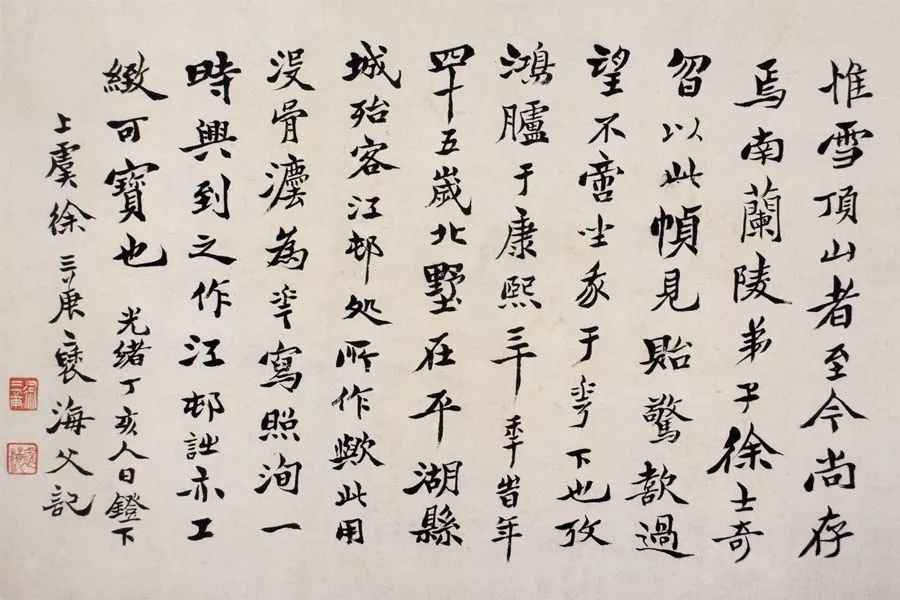 惟雪頂山者至今尚存
焉南蘭陵弟子徐士奇
曶以此幀見貽驚歎過
望不啻坐我于華下也攷
鴻臚于康熙三十季旹年
四十五歲北墅在平湖縣
城殆客江邨処所作歟此用
沒骨灋為華寫照洵一
時興到之作江邨詿亦工
緻可寶也 光緒丁亥人日鐙下
上虞徐三庚褎海父記